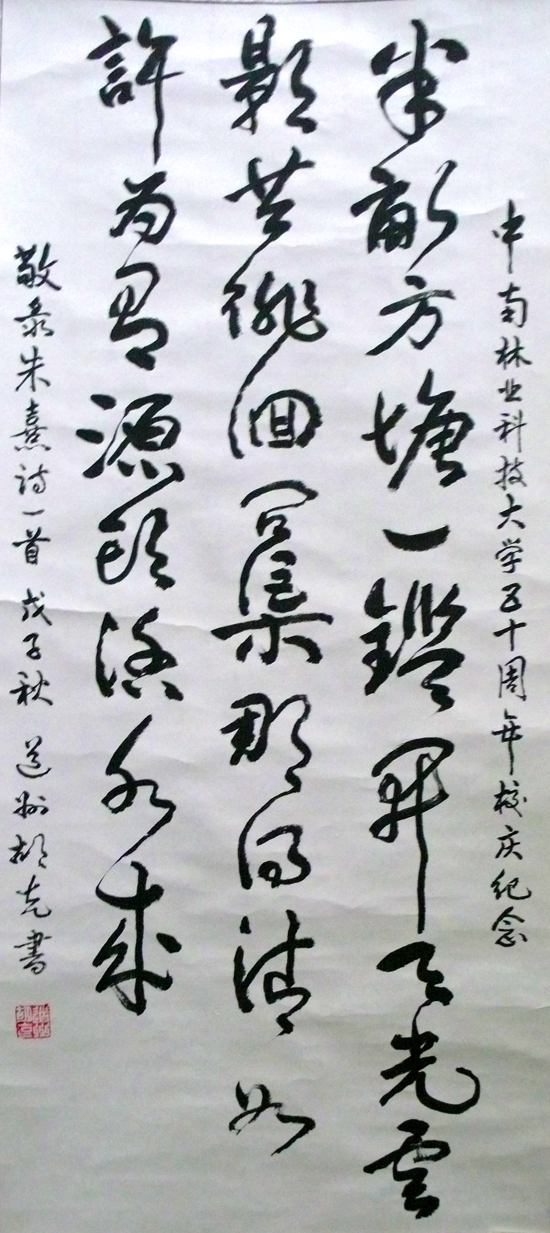 中南林业科技大学五十周年校庆纪念
半畝方塘一鑑開天光雲
影共徘徊问渠那得清如
許为有源頭活水來
敬录朱熹诗一首 戊子秋 道州胡書